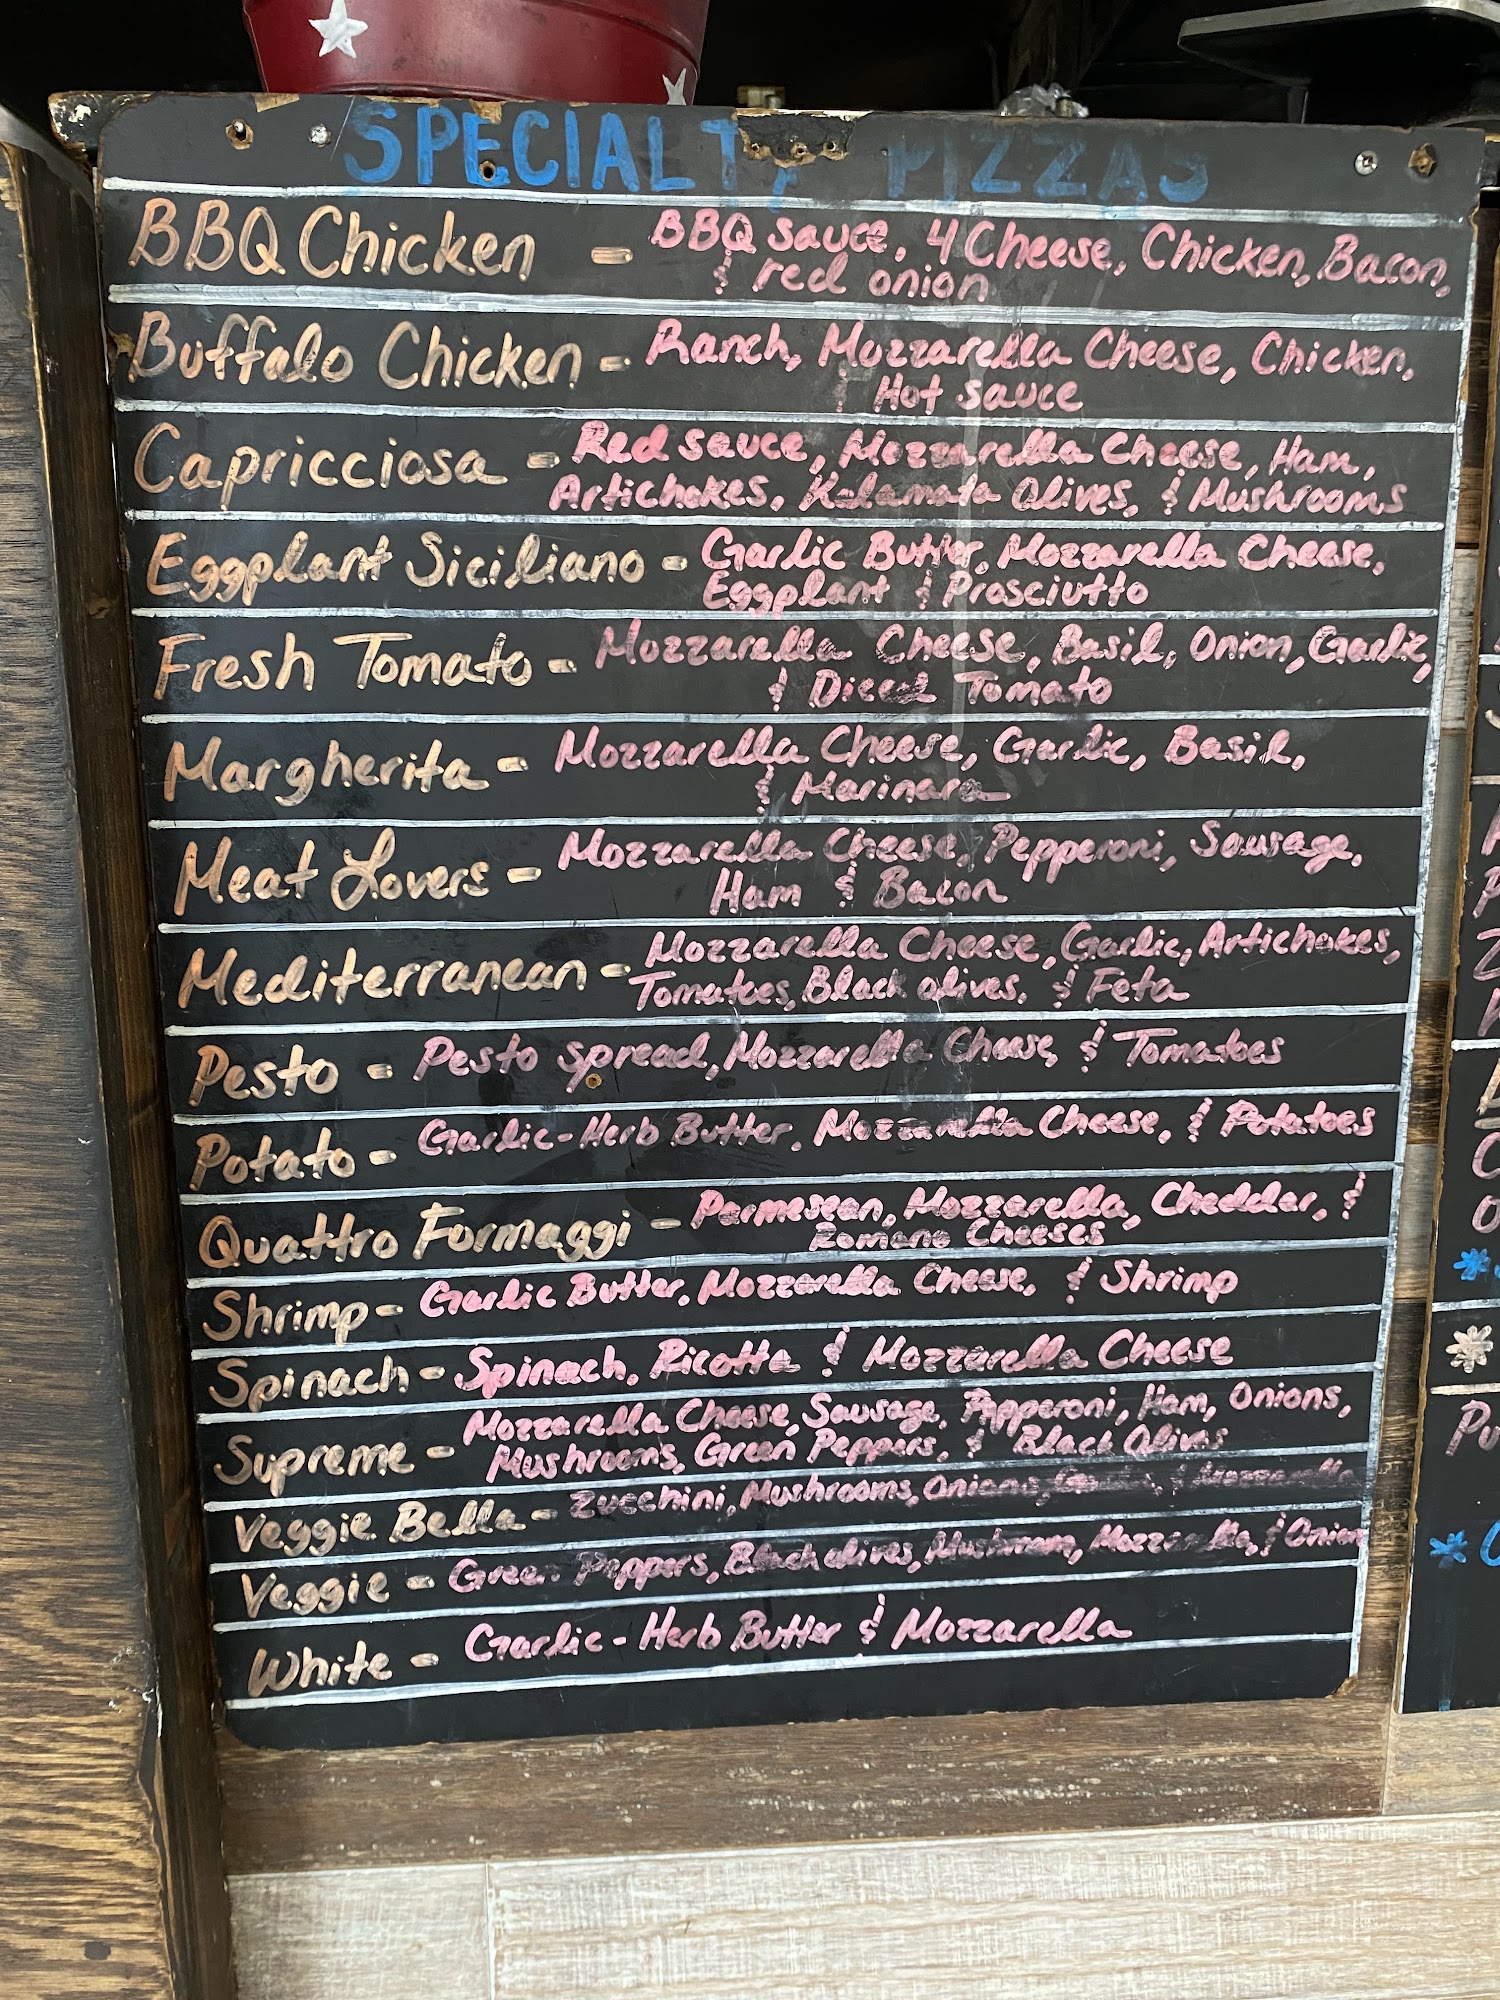 SPECIALTY PIZZAS
BBQ Chicken - BBQ sauce, 4 Cheese, Chicken, Bacon,
& red onion
Buffalo Chicken - Ranch, Mozzarella Cheese, Chicken,
& Hot sauce
Capricciosa - Red sauce, Mozzarella Cheese, Ham,
Artichokes, Kalamata Olives, & Mushrooms
Eggplant Siciliano - Garlic Butter, Mozzarella Cheese,
Eggplant & Prosciutto
Fresh Tomato - Mozzarella Cheese, Basil, Onion, Garlic,
& Diced Tomato
Margherita - Mozzarella Cheese, Garlic, Basil,
& Marinara
Meat Lovers - Mozzarella Cheese, Pepperoni, Sausage,
Ham & Bacon
Mediterranean - Mozzarella Cheese, Garlic, Artichokes,
Tomatoes, Black olives, & Feta
Pesto - Pesto spread, Mozzarella Cheese & Tomatoes
Potato - Garlic-Herb Butter, Mozzarella Cheese, & Potatoes
Quattro Formaggi - Parmesean, Mozzarella, Cheddar, &
Romano Cheeses
Shrimp - Garlic Butter, Mozzarella Cheese, & Shrimp
Spinach - Spinach, Ricotta & Mozzarella Cheese
Supreme - Mozzarella Cheese, Sausage, Pepperoni, Ham, Onions,
Mushrooms, Green Peppers, & Black Olives
Veggie Bella - Zucchini, Mushrooms, Onions, & Mozzarella
Veggie - Green Peppers, Black olives, Mushroom, Mozzarella, & Onion
White - Garlic-Herb Butter & Mozzarella